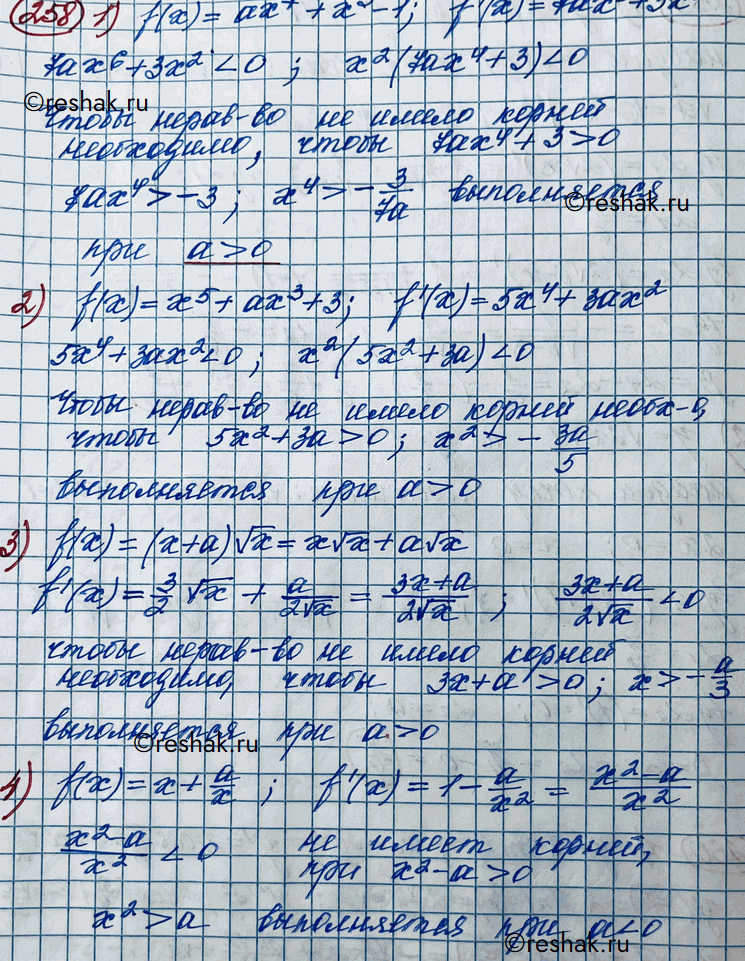 258 1) f(x) = ax⁷ + x³ - 1; f'(x) = 7ax⁶ + 3x²
7ax⁶ + 3x² < 0 ; x²(7ax⁴ + 3) < 0
©reshak.ru
чтобы нерав-во не имело корней
необходимо, чтобы 7ax⁴ + 3 > 0
7ax⁴ > -3 ; x⁴ > - 3/7a выполняется
©reshak.ru
при a > 0
2) f(x) = x⁵ + ax³ + 3; f'(x) = 5x⁴ + 3ax²
5x⁴ + 3ax² < 0 ; x²(5x² + 3a) < 0
Чтобы нерав-во не имело корней необх-о,
чтобы 5x² + 3a > 0 ; x² > - 3a/5
выполняется при a > 0
3) f(x) = (x+a)√x = x√x + a√x
f'(x) = 3/2 √x + a/2√x = 3x+a/2√x ; 3x+a/2√x < 0
чтобы нерав-во не имело корней
необходимо, чтобы 3x + a > 0 ; x > - a/3
выполняется при a > 0
©reshak.ru
4) f(x) = x + a/x ; f'(x) = 1 - a/x² = x²-a/x²
x²-a/x² < 0 не имеет корней,
при x² - a > 0
x² > a выполняется при a < 0
©reshak.ru